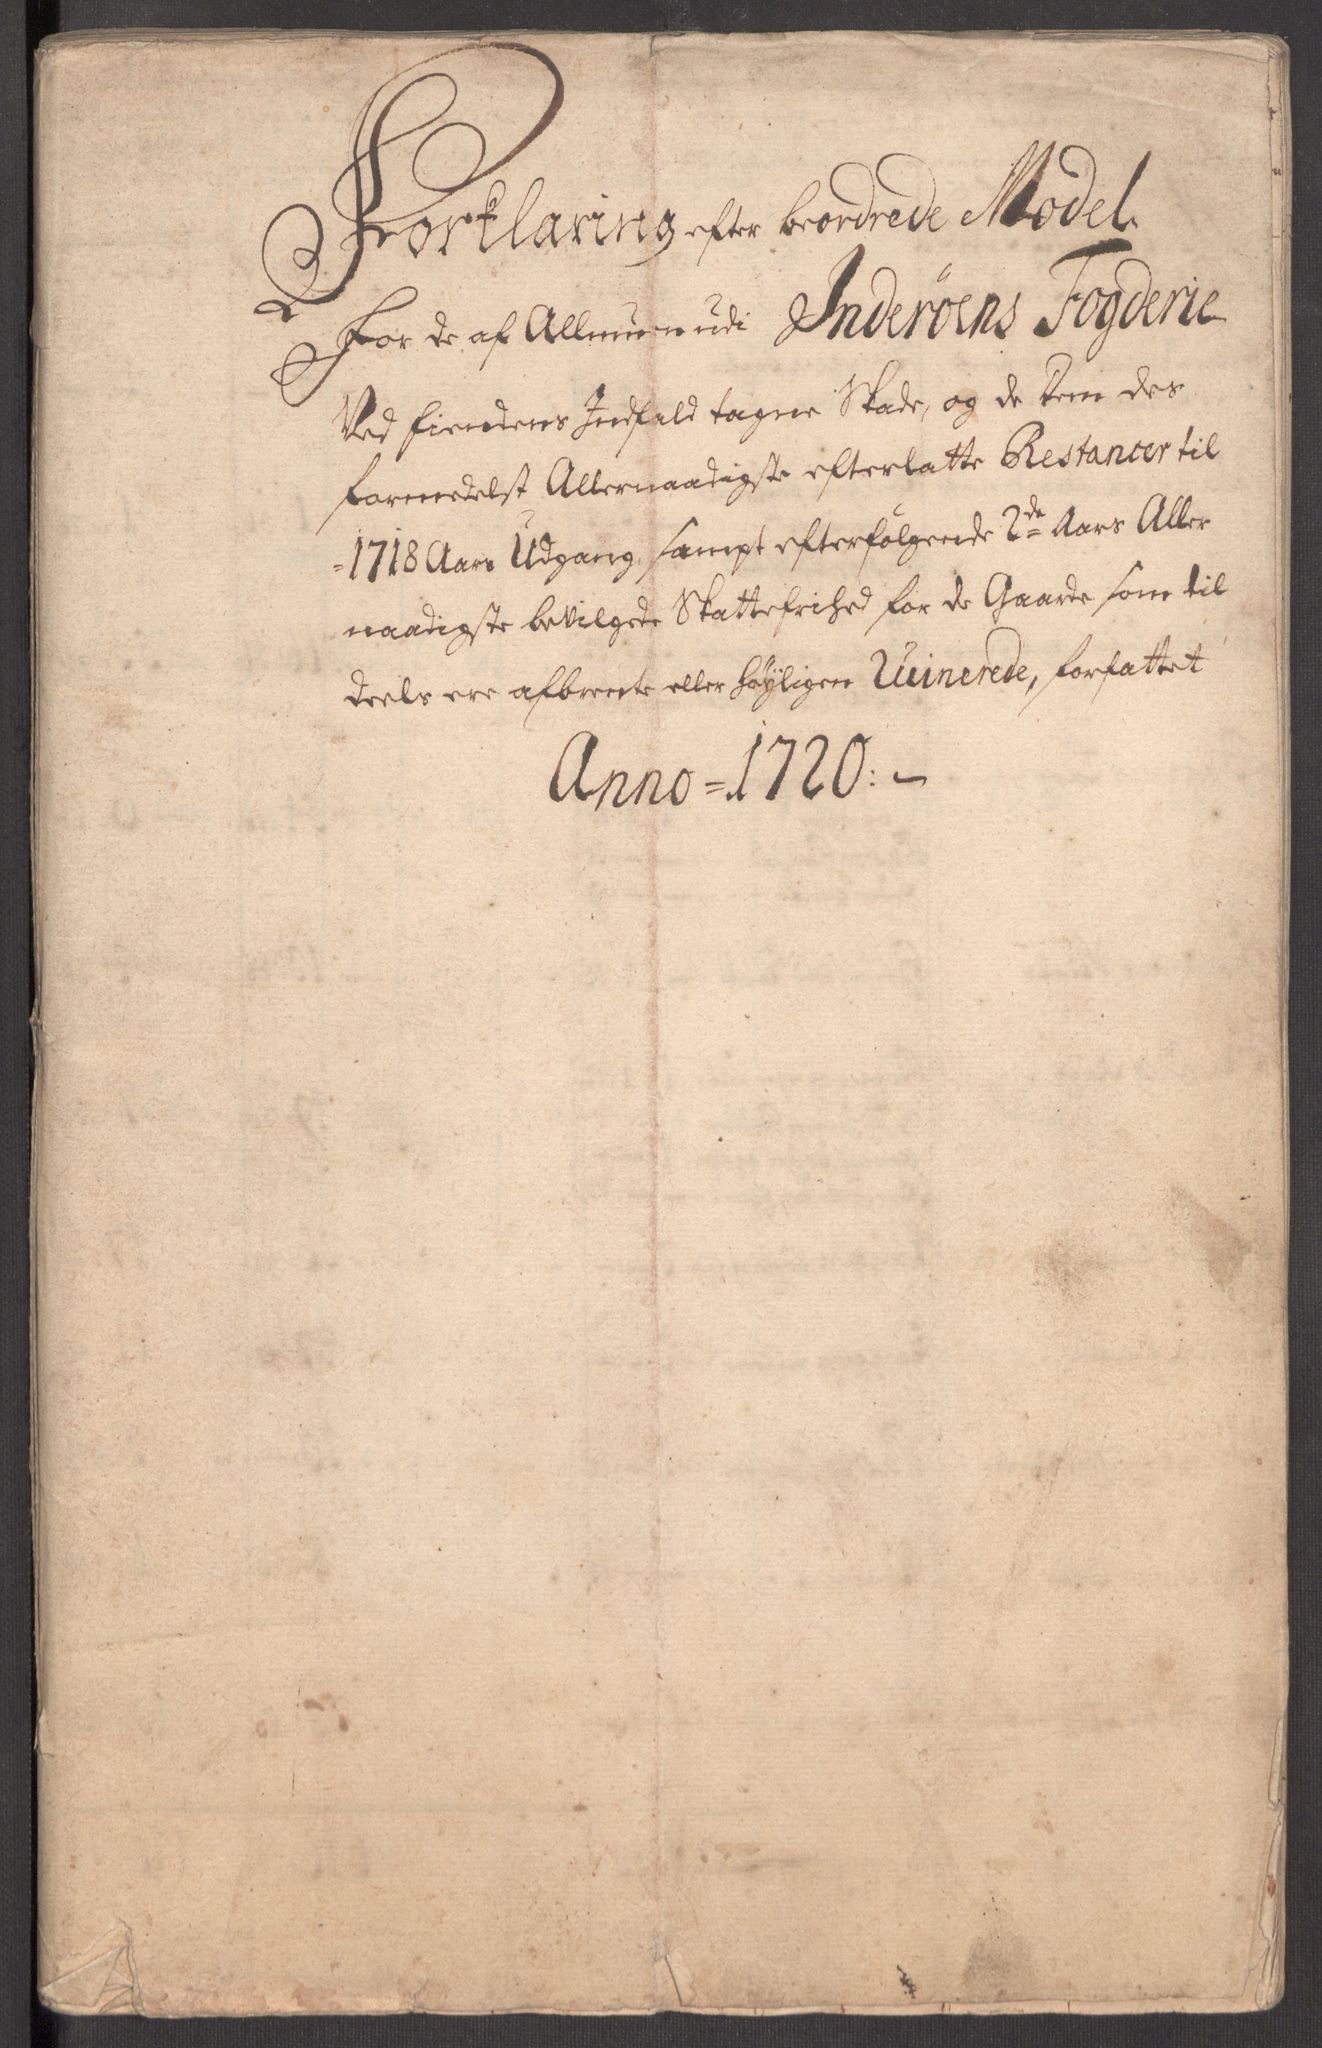 Forklaring efter beordrede Model
For de af Allmuen udi Inderöens Fogderie
Ved fiendens Indfald tagne Skade, og de dem des
formedelst Allernaadigste efterlatte Restancer til
1718 Aars Udgang, sampt efterfölgende 2de Aars Aller
naadigste bevilgede Skattefrihed for de Gaarde som til
deels ere afbrente eller höyligen Ruinerede, forfattet
Anno 1720: